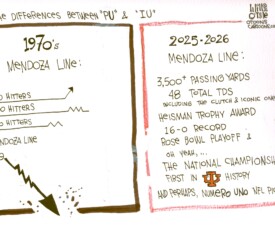 DIFFERENCES BETWEEN "PU" & "IU"
1970's
MENDOZA LINE:
HITTERS
HITTERS
HITTERS
LINE
2025-2026
MENDOZA LINE:
3,500+ PASSING YARDS
48 TOTAL TDS
INCLUDING THE CLUTCH & ICONIC
HEISMAN TROPHY AWARD
16-0 RECORD
ROSE BOWL PLAYOFF &
OH YEAH, ...
THE NATIONAL CHAMPIONSH
FIRST IN IU HISTORY
AND PERHAPS, NUMERO UNO NFL PIC